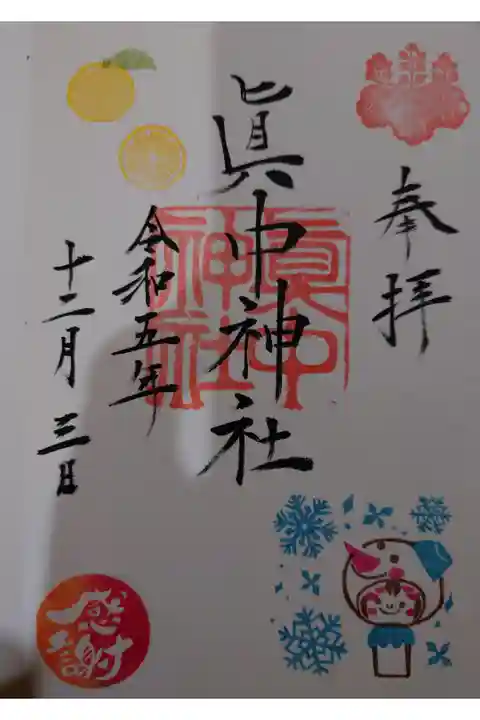 奉拝
眞中神社
眞中
神社
令和五年
十二月三日
感謝